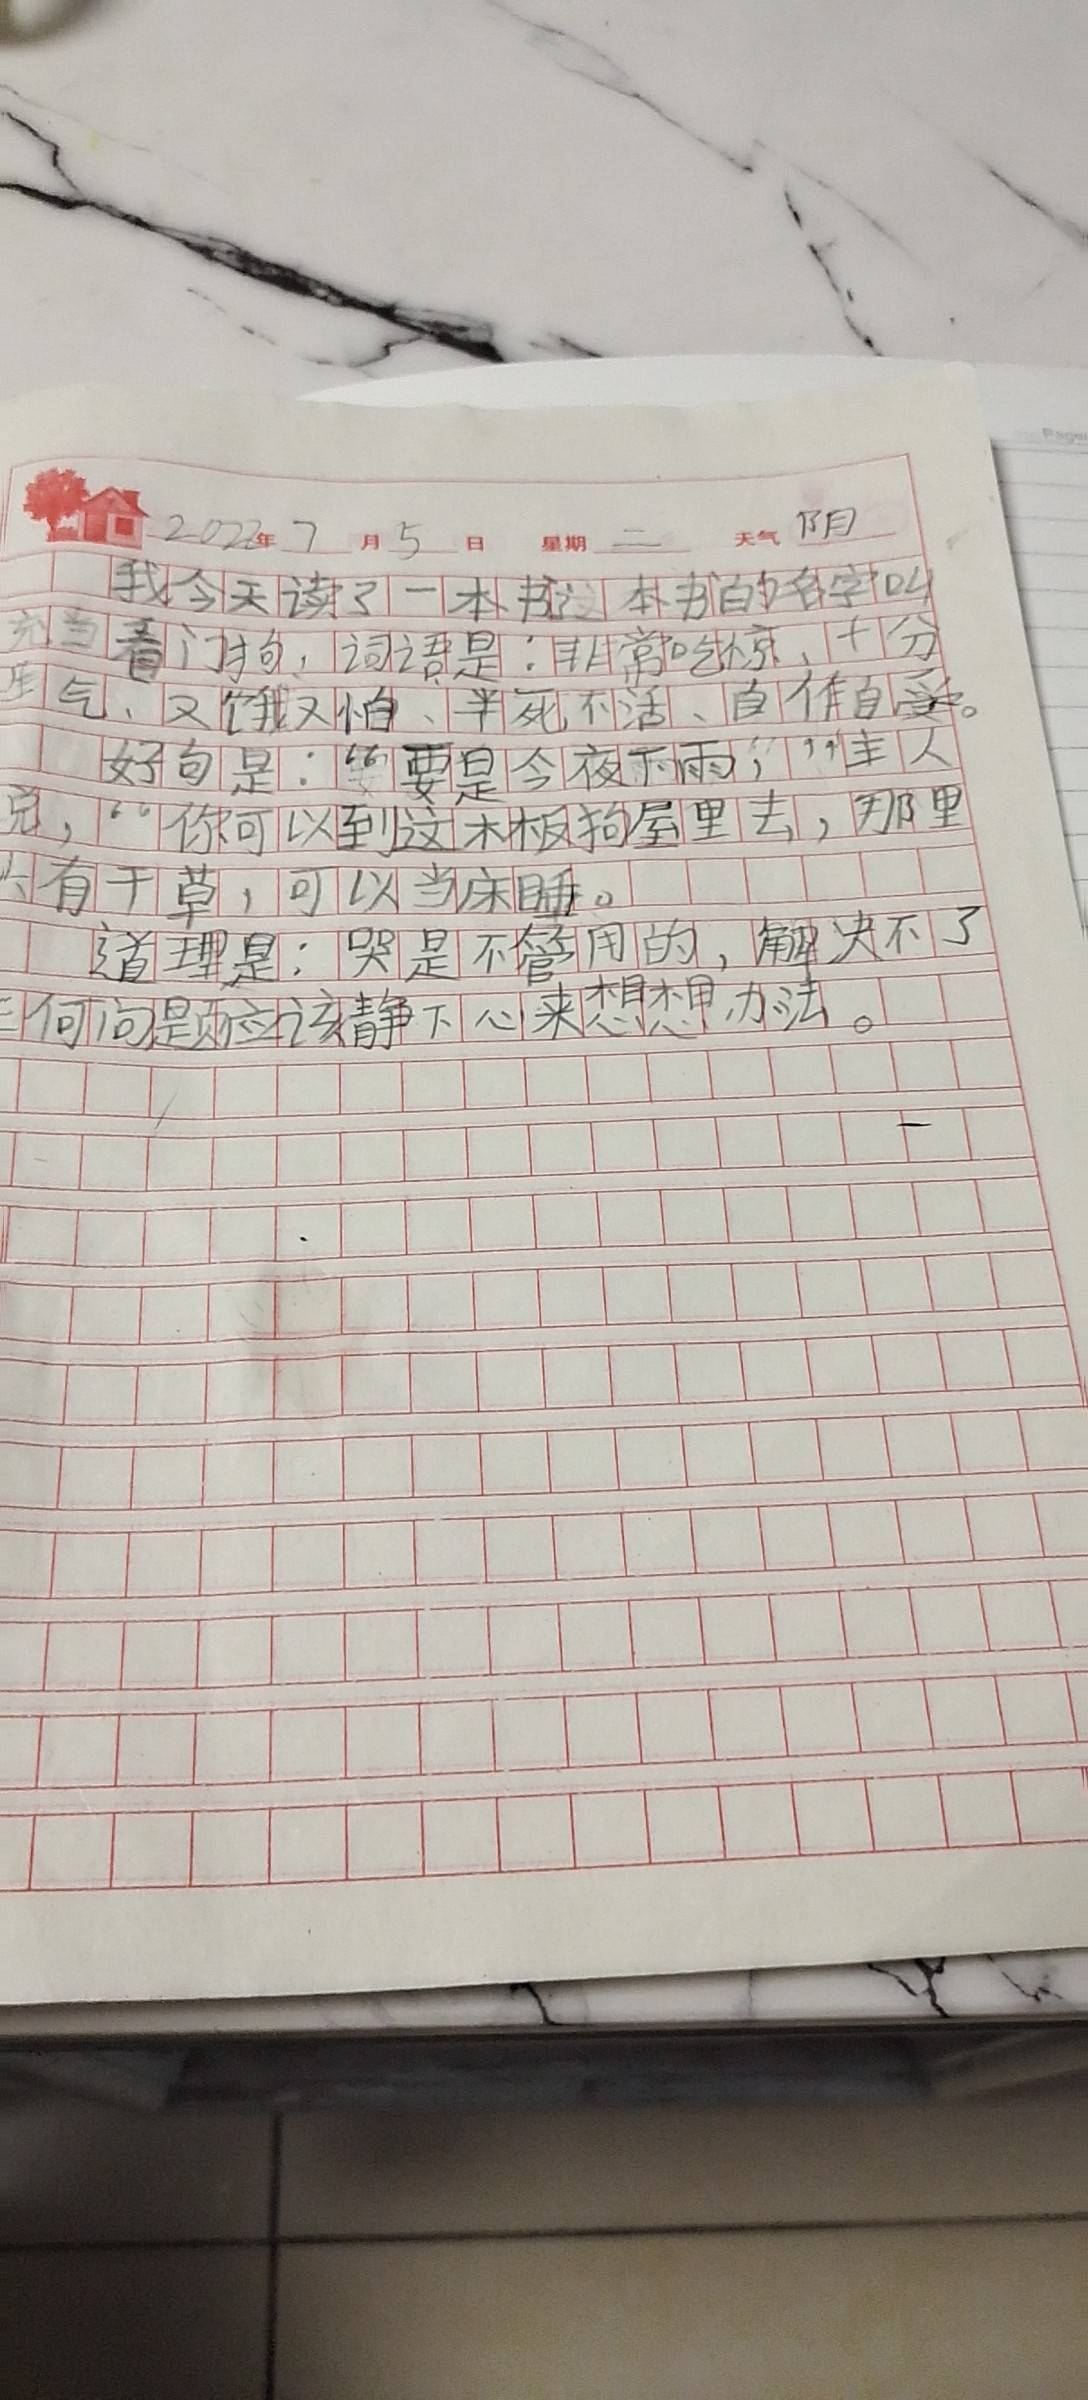 2022年7月5日 星期二 天气阴
我今天读了一本书这本书的名字叫
充当看门狗，词语是：非常吃惊、十分
生气、又饿又怕、半死不活、自作自受。
好句是：“要是今夜下雨，”主人
说，“你可以到这木板狗屋里去，那里
有干草，可以当床睡。
道理是：哭是不管用的，解决不了
何问题应该静下心来想想办法。